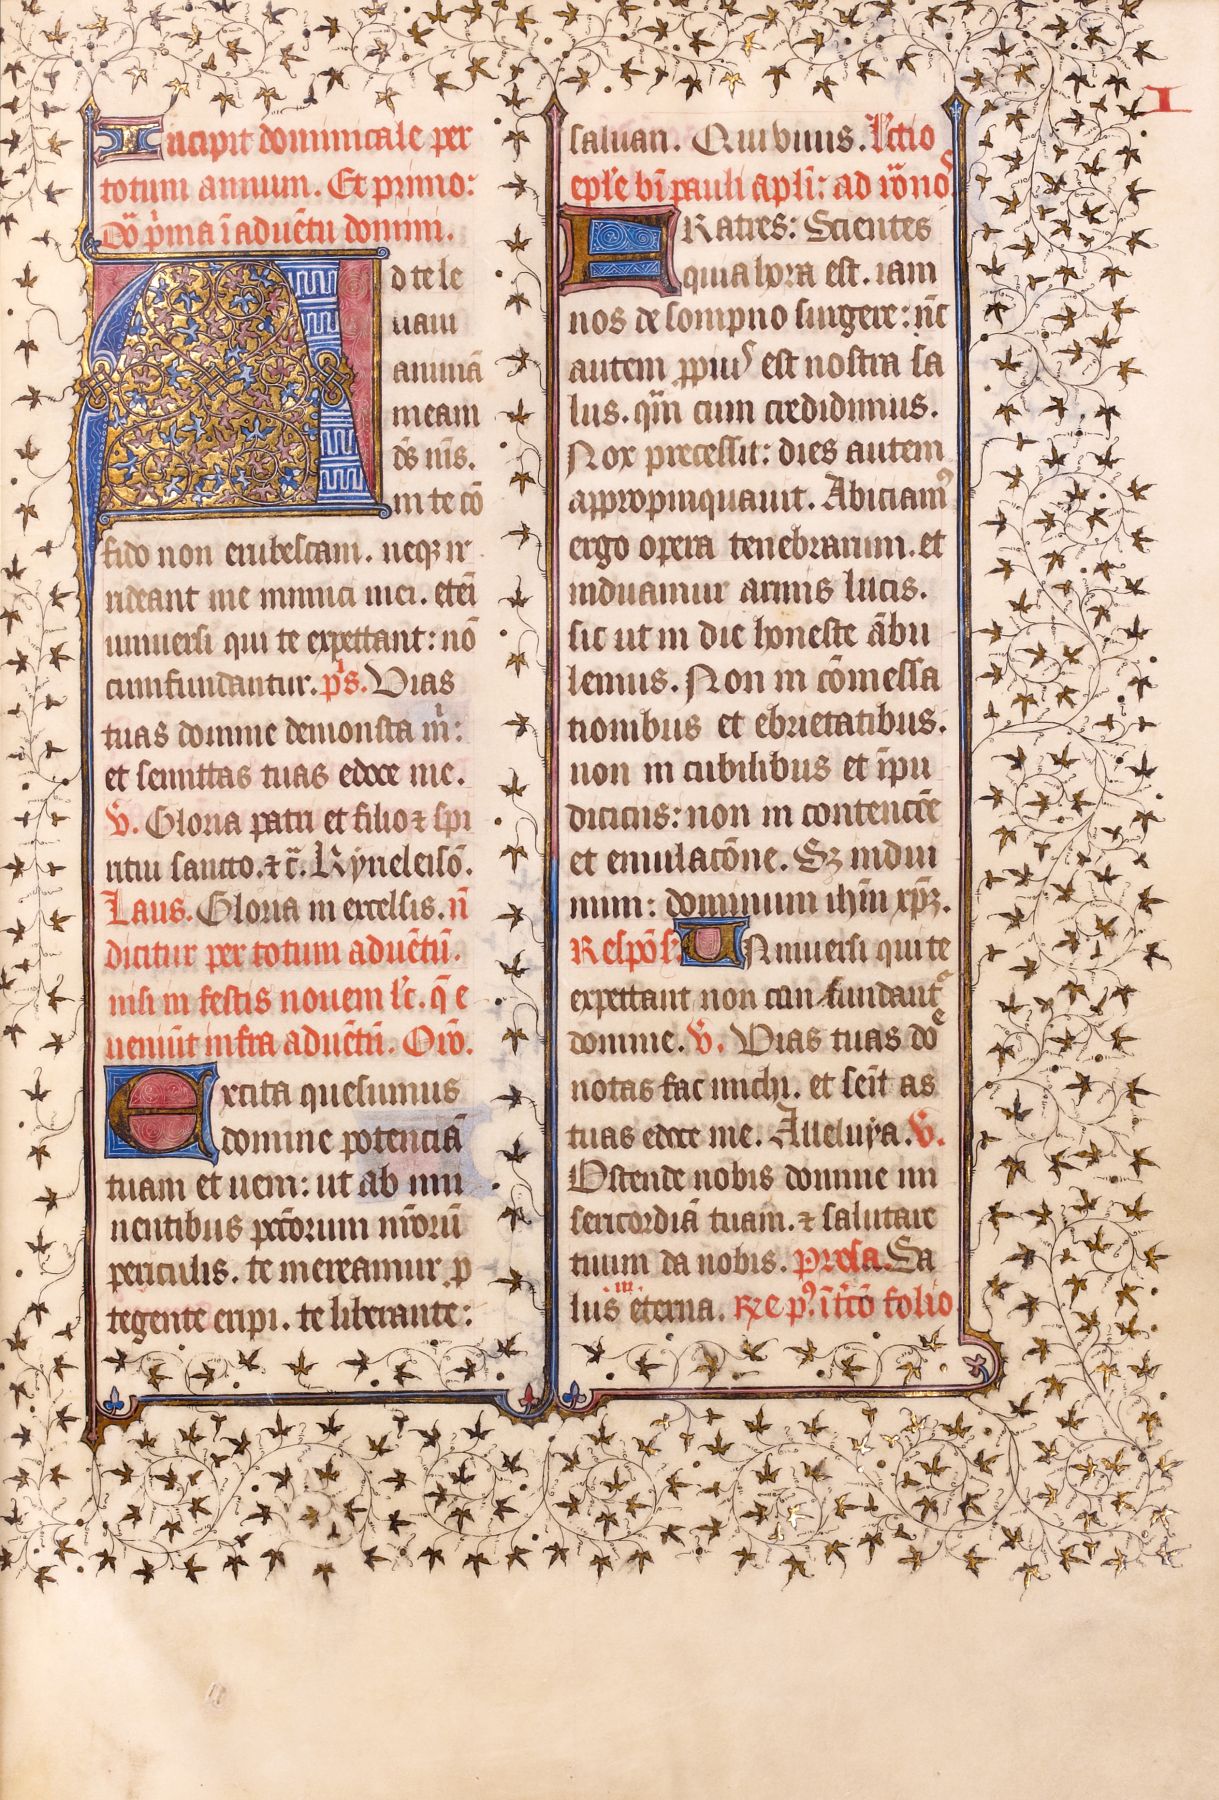 I
Incipit dominicale per
totum annum. Et primo:
Dō p̄ma ī aduētu domini.
Ad te le
uaui
animā
meam
d̄s m̄s.
in te cō
fido non erubescam. neqꝫ ir
rideant me inimici mei. eteī
uniuersi qui te expettant: nō
cumfundantur. p̄s. Vias
tuas domine demonsta m̄:
et semittas tuas edoce me.
V̄. Gloria patri et filio ⁊ spi
ritui sancto. ⁊ c̄. Kyneleisō.
Laus. Gloria in excelsis. n̄
dicitur per totum aduētū.
nisi in festis nouem lc̄. q̄ e
ueniūt infra aduētū. Orō.
Excita quesumus
domine potenciā
tuam et ueni: ut ab mi
nentibus pctōrum nr̄orū
periculis. te mereamur ꝓ
tegente eripi. te liberante:
saluari. Qui viuis. Lctio
ep̄le bī pauli apl̄i: ad rōnoꝰ
FRatres: Scientes
quia hora est. iam
nos de sompno surgere: nc̄
autem ꝓpiuꝰ est nostra sa
lus. qm̄ cum credidimus.
Nox precessit: dies autem
appropinquauit. Abiciamꝰ
ergo opera tenebrarum. et
induamur armis lucis.
sic ut in die honeste ābu
lemus. Non in cōmessa
tionibus et ebrietatibus.
non in cubilibus et īpu
diciciis: non in contencōe
et emulacōne. Sꝫ indui
mini: dominum ihm̄ xp̄ꝫ.
Respōs. UNiuersi qui te
expettant non con fundant̄
domine. V̄. Vias tuas dōe
notas fac michi. et seit̄ as
tuas edoce me. Alleluya. V̄.
Ostende nobis domine mi
sericordiā tuam. ⁊ salutare
tuum da nobis. Presa. Sa
lus eterna. Re p̄ꝰ ī tc̄o folio